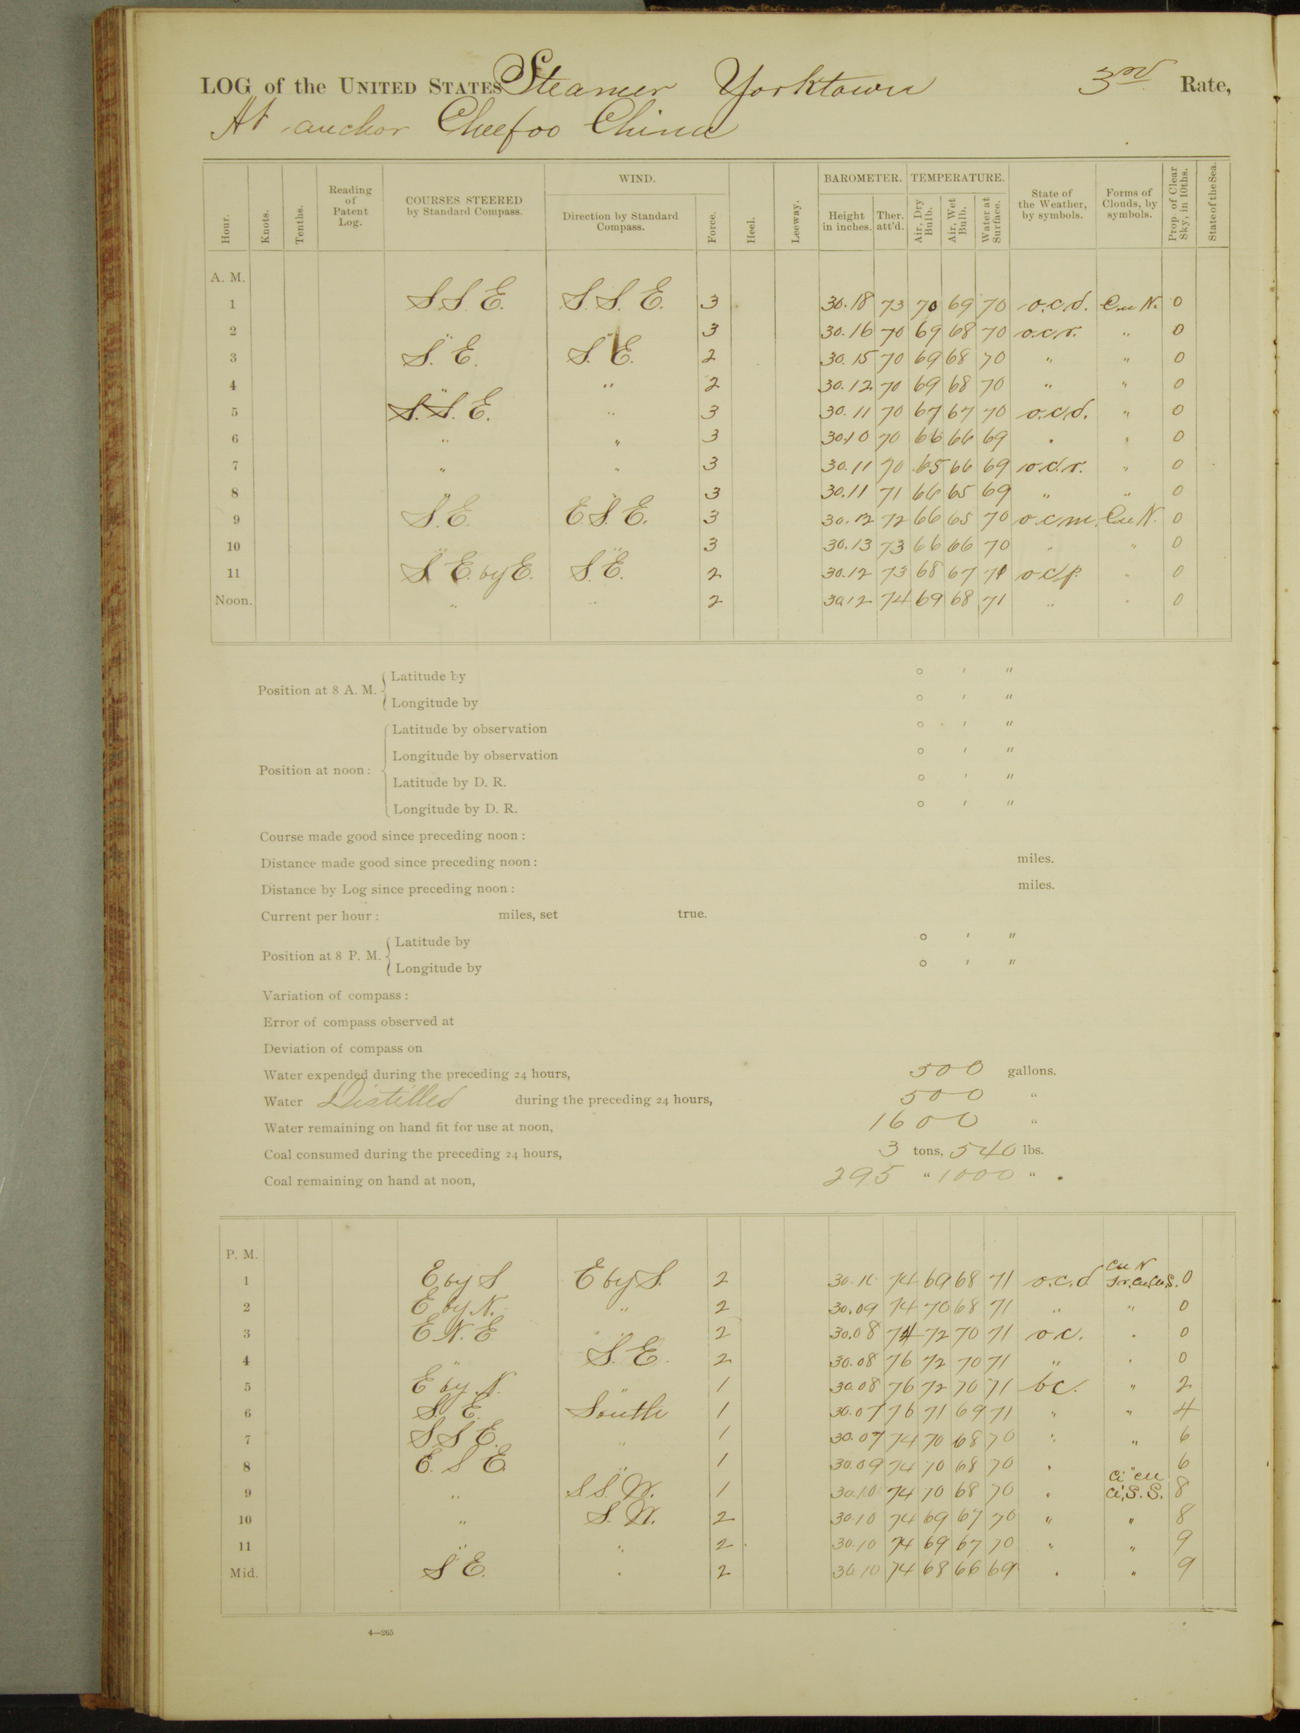 LOG of the UNITED STATES Steamer Yorktown 3rd Rate,
At anchor Cheefoo China
Hour. Knots. Tenths. Reading of Patent Log. COURSES STEERED by Standard Compass. WIND. Direction by Standard Compass. Force. Heel. Leeway. BAROMETER. Height in inches. Ther. att'd. TEMPERATURE. Air, Dry Bulb. Air, Wet Bulb. Water at Surface. State of the Weather, by symbols. Forms of Clouds, by symbols. Prop. of Clear Sky, in 10ths. State of the Sea.
A. M.
1 S.S.E. S.S.E. 3 30.18 73 70 69 70 o.c.d. Cu N. 0
2 " " 3 30.16 70 69 68 70 o.c.r. " 0
3 S.E. S.E. 2 30.15 70 69 68 70 " " 0
4 " " 2 30.12 70 69 68 70 " " 0
5 S.S.E. " 3 30.11 70 67 67 70 o.c.d. " 0
6 " " 3 30.10 70 66 66 69 " " 0
7 " " 3 30.11 70 65 66 69 o.c.r. " 0
8 " 3 30.11 71 66 65 69 " " 0
9 S.E. E.S.E. 3 30.12 72 66 65 70 o.c.m. Cu N. 0
10 " " 3 30.13 73 66 66 70 " " 0
11 S.E. by E. S.E. 2 30.12 73 68 67 71 o.c.p. " 0
Noon. " " 2 30.12 74 69 68 71 " " 0
Position at 8 A. M. Latitude by ° ′ ″
Longitude by ° ′ ″
Position at noon: Latitude by observation ° ′ ″
Longitude by observation ° ′ ″
Latitude by D. R. ° ′ ″
Longitude by D. R. ° ′ ″
Course made good since preceding noon:
Distance made good since preceding noon: miles.
Distance by Log since preceding noon: miles.
Current per hour: miles, set true.
Position at 8 P. M. Latitude by ° ′ ″
Longitude by ° ′ ″
Variation of compass:
Error of compass observed at
Deviation of compass on
Water expended during the preceding 24 hours, 500 gallons.
Water Distilled during the preceding 24 hours, 500 "
Water remaining on hand fit for use at noon, 1600 "
Coal consumed during the preceding 24 hours, 3 tons, 540 lbs.
Coal remaining on hand at noon, 295 " 1000 "
P. M.
1 E. by S E by S. 2 30.10 74 69 68 71 o.c.d Cu N 0
2 E by N. " 2 30.09 74 70 68 71 " " 0
3 E.N.E " 2 30.08 74 72 70 71 o.c. " 0
4 " S.E. 2 30.08 76 72 70 71 " " 0
5 E by N. " 1 30.08 76 72 70 71 b.c. " 2
6 S.E. South 1 30.07 76 71 69 71 " " 4
7 S.S.E. " 1 30.07 74 70 68 70 " " 6
8 E.S.E " 1 30.09 74 70 68 70 " " 6
9 " S.S.W. 1 30.10 74 70 68 70 " Ci cu Ci, S.S. 8
10 " S.W. 2 30.10 74 69 67 70 " " 8
11 " " 2 30.10 74 69 67 70 " " 9
Mid. S.E. " 2 30.10 74 68 66 69 " " 9
4—265